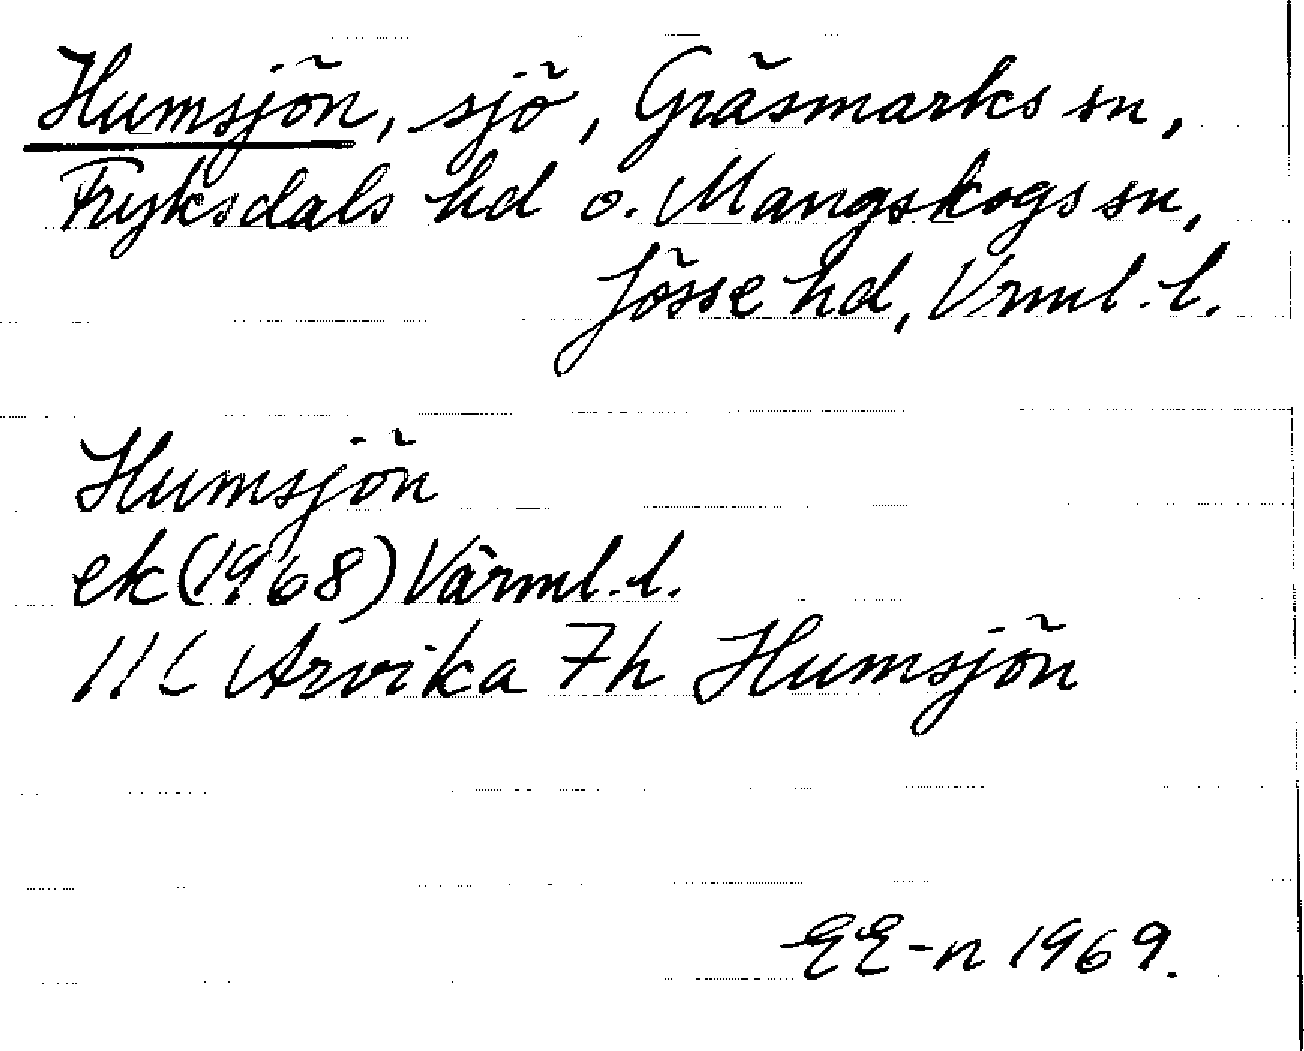 Humsjön, sjö, Gräsmarks sn,
Fryksdals hd o. Mangskogs sn,
Jösse hd, Vrml. l.
Humsjön
ek (1968) Värml. l.
11C Arvika 7h Humsjön
EE-n 1969.